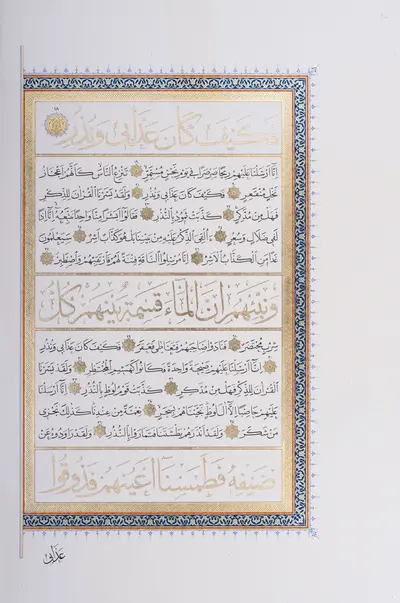 فَكَيْفَ كَانَ عَذَابِي وَنُذُرِ
إِنَّا أَرْسَلْنَا عَلَيْهِمْ رِيحًا صَرْصَرًا فِي يَوْمِ نَحْسٍ مُسْتَمِرٍّ تَنْزِعُ النَّاسَ كَأَنَّهُمْ أَعْجَازُ
نَخْلٍ مُنْقَعِرٍ فَكَيْفَ كَانَ عَذَابِي وَنُذُرِ وَلَقَدْ يَسَّرْنَا الْقُرْآنَ لِلذِّكْرِ
فَهَلْ مِنْ مُدَّكِرٍ كَذَّبَتْ ثَمُودُ بِالنُّذُرِ فَقَالُوا أَبَشَرًا مِنَّا وَاحِدًا نَتَّبِعُهُ إِنَّا إِذًا
لَفِي ضَلَالٍ وَسُعُرٍ أَأُلْقِيَ الذِّكْرُ عَلَيْهِ مِنْ بَيْنِنَا بَلْ هُوَ كَذَّابٌ أَشِرٌ سَيَعْلَمُونَ
غَدًا مَنِ الْكَذَّابُ الْأَشِرُ إِنَّا مُرْسِلُوا النَّاقَةِ فِتْنَةً لَهُمْ فَارْتَقِبْهُمْ وَاصْطَبِرْ
وَنَبِّئْهُمْ أَنَّ الْمَاءَ قِسْمَةٌ بَيْنَهُمْ كُلُّ
شِرْبٍ مُحْتَضَرٌ فَنَادَوْا صَاحِبَهُمْ فَتَعَاطَى فَعَقَرَ فَكَيْفَ كَانَ عَذَابِي وَنُذُرِ
إِنَّا أَرْسَلْنَا عَلَيْهِمْ صَيْحَةً وَاحِدَةً فَكَانُوا كَهَشِيمِ الْمُحْتَظِرِ وَلَقَدْ يَسَّرْنَا
الْقُرْآنَ لِلذِّكْرِ فَهَلْ مِنْ مُدَّكِرٍ كَذَّبَتْ قَوْمُ لُوطٍ بِالنُّذُرِ إِنَّا أَرْسَلْنَا
عَلَيْهِمْ حَاصِبًا إِلَّا آلَ لُوطٍ نَجَّيْنَاهُمْ بِسَحَرٍ نِعْمَةً مِنْ عِنْدِنَا كَذَلِكَ نَجْزِي
مَنْ شَكَرَ وَلَقَدْ أَنْذَرَهُمْ بَطْشَتَنَا فَتَمَارَوْا بِالنُّذُرِ وَلَقَدْ رَاوَدُوهُ عَنْ
ضَيْفِهِ فَطَمَسْنَا أَعْيُنَهُمْ فَذُوقُوا
عَذَابِي